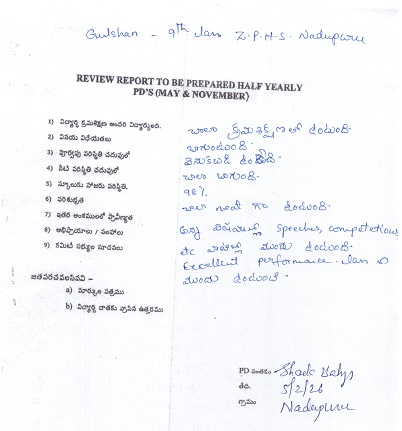 Gulshan - 9th Jan Z.P.H.S. Nadupuru
REVIEW REPORT TO BE PREPARED HALF YEARLY
PD'S (MAY & NOVEMBER)
1) విద్యార్థి క్రమశిక్షణ అందరి విద్యార్థులది. చాలా క్రమశిక్షణలో ఉంటుంది.
2) వినయ విధేయతలు బాగుంటుంది.
3) పూర్వపు పరిస్థితి చదువులో వెనుకబడి
4) నేటి పరిస్థితి చదువులో చాలా బాగుంది.
5) స్కూలుకు హాజరు పరిస్థితి. 98%
6) పరిశుభ్రత చాలా గా ఉంటుంది.
7) ఇతర అంశములలో ప్రావీణ్యత అన్ని speeches, competetions,
8) అభిప్రాయాలు / సలహాలు etc వాటిల్లో ముందు ఉంటుంది.
9) కమిటీ సభ్యుల సూచనలు Excellent performance.
ముందు ఉంటుంది.
జతపరచవలసినవి –
a) మార్కుల పత్రము
b) విద్యార్థి దాతకు వ్రాసిన ఉత్తరము
PD సంతకం
తేది. 5/2/26
గ్రామం Nadupuru